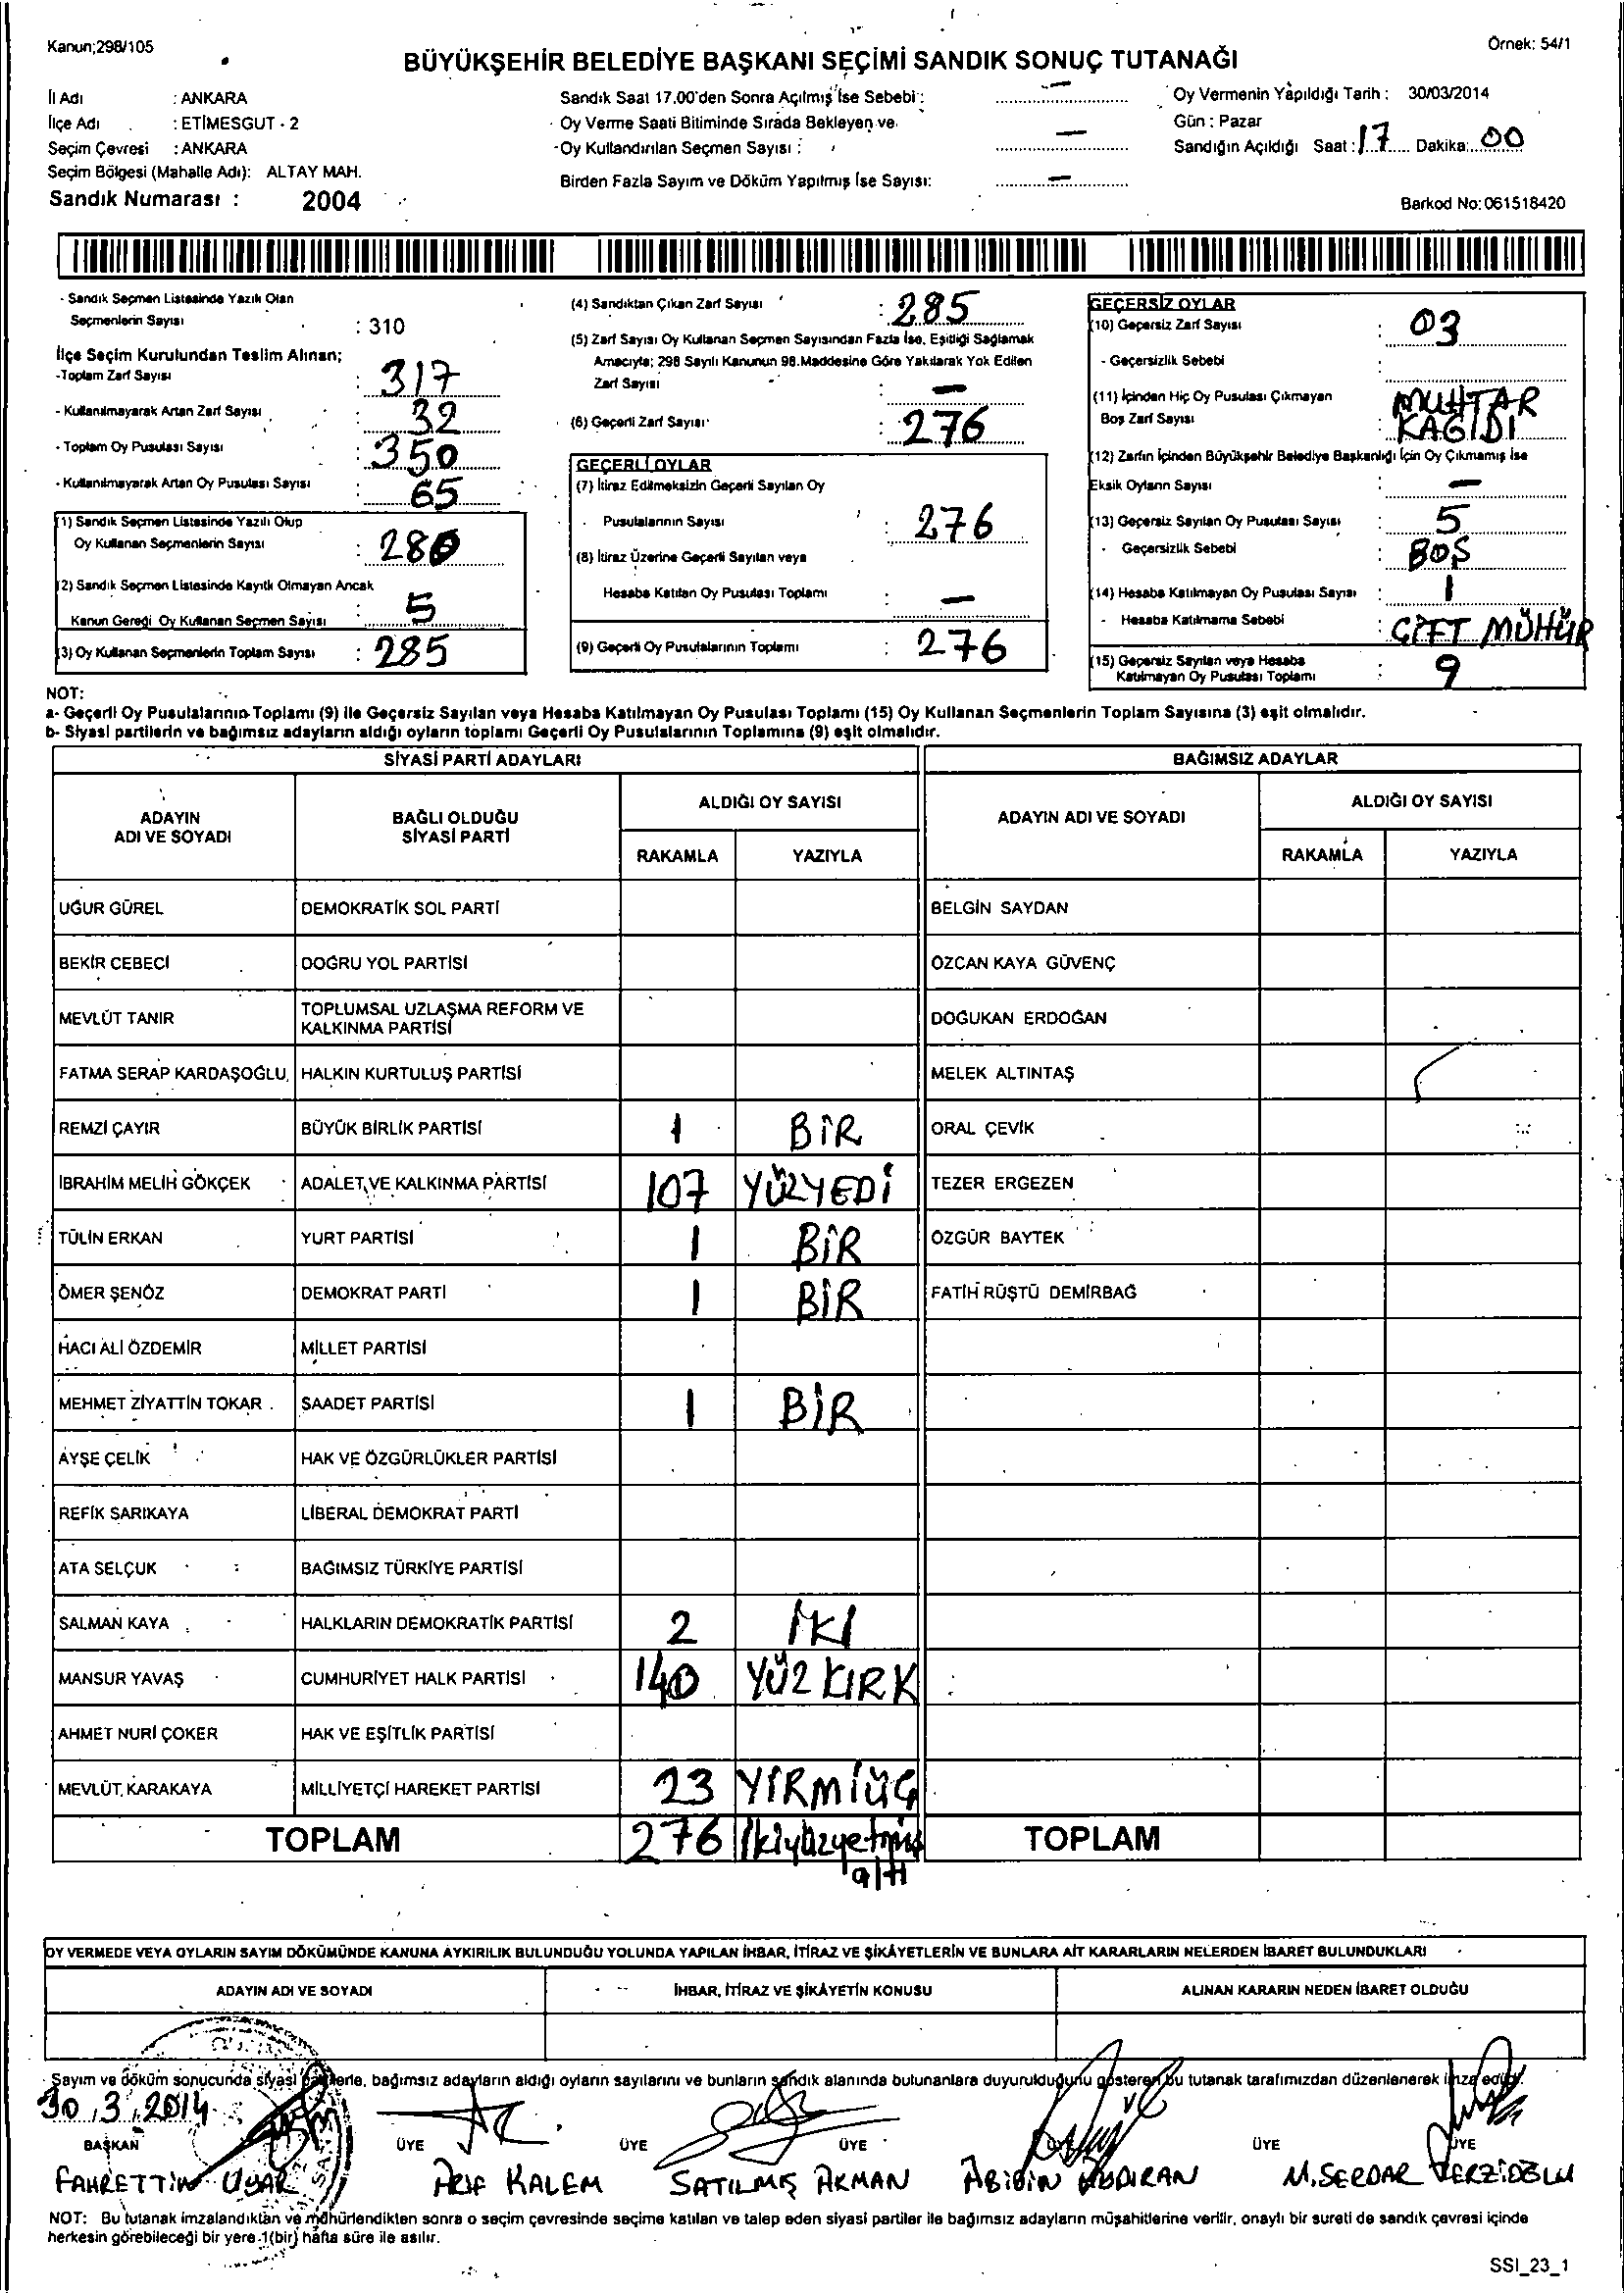 Kanun;298/105
Örnek: 54/1
BÜYÜKŞEHİR BELEDİYE BAŞKANI SEÇİMİ SANDIK SONUÇ TUTANAĞI
İl Adı : ANKARA
İlçe Adı : ETİMESGUT - 2
Seçim Çevresi : ANKARA
Seçim Bölgesi (Mahalle Adı): ALTAY MAH.
Sandık Numarası : 2004
Sandık Saat 17.00'den Sonra Açılmış İse Sebebi : –
Oy Verme Saati Bitiminde Sırada Bekleyen ve
Oy Kullandırılan Seçmen Sayısı : –
Birden Fazla Sayım ve Döküm Yapılmış İse Sayısı: –
Oy Vermenin Yapıldığı Tarih : 30/03/2014
Gün : Pazar
Sandığın Açıldığı Saat : 17 Dakika: 00
Barkod No: 061518420
- Sandık Seçmen Listesinde Yazılı Olan
Seçmenlerin Sayısı : 310
İlçe Seçim Kurulundan Teslim Alınan;
-Toplam Zarf Sayısı : 317
- Kullanılmayarak Artan Zarf Sayısı : 32
- Toplam Oy Pusulası Sayısı : 350
- Kullanılmayarak Artan Oy Pusulası Sayısı : 65
(1) Sandık Seçmen Listesinde Yazılı Olup
Oy Kullanan Seçmenlerin Sayısı : 280
(2) Sandık Seçmen Listesinde Kayıtlı Olmayan Ancak
Kanun Gereği Oy Kullanan Seçmen Sayısı : 5
(3) Oy Kullanan Seçmenlerin Toplam Sayısı : 285
(4) Sandıktan Çıkan Zarf Sayısı : 285
(5) Zarf Sayısı Oy Kullanan Seçmen Sayısından Fazla İse, Eşitliği Sağlamak
Amacıyla; 298 Sayılı Kanunun 98.Maddesine Göre Yakılarak Yok Edilen
Zarf Sayısı : –
(6) Geçerli Zarf Sayısı : 276
GEÇERLİ OYLAR
(7) İtiraz Edilmeksizin Geçerli Sayılan Oy
Pusulalarının Sayısı : 276
(8) İtiraz Üzerine Geçerli Sayılan veya
Hesaba Katılan Oy Pusulası Toplamı : –
(9) Geçerli Oy Pusulalarının Toplamı : 276
GEÇERSİZ OYLAR
(10) Geçersiz Zarf Sayısı : 03
- Geçersizlik Sebebi :
(11) İçinden Hiç Oy Pusulası Çıkmayan
Boş Zarf Sayısı : MUHTAR KAGIDI
(12) Zarfın İçinden Büyükşehir Belediye Başkanlığı İçin Oy Çıkmamış İse
Eksik Oyların Sayısı : –
(13) Geçersiz Sayılan Oy Pusulası Sayısı : 5
- Geçersizlik Sebebi : BOŞ
(14) Hesaba Katılmayan Oy Pusulası Sayısı : 1
- Hesaba Katılmama Sebebi : ÇİFT MÜHÜR
(15) Geçersiz Sayılan veya Hesaba
Katılmayan Oy Pusulası Toplamı : 9
NOT:
a- Geçerli Oy Pusulalarının Toplamı (9) ile Geçersiz Sayılan veya Hesaba Katılmayan Oy Pusulası Toplamı (15) Oy Kullanan Seçmenlerin Toplam Sayısına (3) eşit olmalıdır.
b- Siyasi partilerin ve bağımsız adayların aldığı oyların toplamı Geçerli Oy Pusulalarının Toplamına (9) eşit olmalıdır.
SİYASİ PARTİ ADAYLARI
ADAYIN ADI VE SOYADI
BAĞLI OLDUĞU SİYASİ PARTİ
ALDIĞI OY SAYISI
RAKAMLA YAZIYLA
UĞUR GÜREL DEMOKRATİK SOL PARTİ
BEKİR CEBECİ DOĞRU YOL PARTİSİ
MEVLÜT TANIR TOPLUMSAL UZLAŞMA REFORM VE
KALKINMA PARTİSİ
FATMA SERAP KARDAŞOĞLU HALKIN KURTULUŞ PARTİSİ
REMZİ ÇAYIR BÜYÜK BİRLİK PARTİSİ 1 BİR
İBRAHİM MELİH GÖKÇEK ADALET VE KALKINMA PARTİSİ 107 YÜZYEDİ
TÜLİN ERKAN YURT PARTİSİ 1 BİR
ÖMER ŞENÖZ DEMOKRAT PARTİ 1 BİR
HACI ALİ ÖZDEMİR MİLLET PARTİSİ
MEHMET ZİYATTİN TOKAR SAADET PARTİSİ 1 BİR
AYŞE ÇELİK HAK VE ÖZGÜRLÜKLER PARTİSİ
REFİK SARIKAYA LİBERAL DEMOKRAT PARTİ
ATA SELÇUK BAĞIMSIZ TÜRKİYE PARTİSİ
SALMAN KAYA HALKLARIN DEMOKRATİK PARTİSİ 2 İKİ
MANSUR YAVAŞ CUMHURİYET HALK PARTİSİ 140 YÜZ KIRK
AHMET NURİ ÇOKER HAK VE EŞİTLİK PARTİSİ
MEVLÜT KARAKAYA MİLLİYETÇİ HAREKET PARTİSİ 23 YİRMİÜÇ
TOPLAM 276 İkiyüzyetmiş
altı
BAĞIMSIZ ADAYLAR
ADAYIN ADI VE SOYADI
ALDIĞI OY SAYISI
RAKAMLA YAZIYLA
BELGİN SAYDAN
ÖZCAN KAYA GÜVENÇ
DOĞUKAN ERDOĞAN
MELEK ALTINTAŞ
ORAL ÇEVİK
TEZER ERGEZEN
ÖZGÜR BAYTEK
FATİH RÜŞTÜ DEMİRBAĞ
TOPLAM
OY VERMEDE VEYA OYLARIN SAYIM DÖKÜMÜNDE KANUNA AYKIRILIK BULUNDUĞU YOLUNDA YAPILAN İHBAR, İTİRAZ VE ŞİKÂYETLERİN VE BUNLARA AİT KARARLARIN NELERDEN İBARET BULUNDUKLARI
ADAYIN ADI VE SOYADI İHBAR, İTİRAZ VE ŞİKÂYETİN KONUSU ALINAN KARARIN NEDEN İBARET OLDUĞU
Sayım ve döküm sonucunda siyasi partilerle, bağımsız adayların aldığı oyların sayılarını ve bunların sandık alanında bulunanlara duyurulduğunu gösteren bu tutanak tarafımızdan düzenlenerek imza edildi.
30.3.2014
BAŞKAN ÜYE ÜYE ÜYE ÜYE ÜYE
FAHRETTİN UYAR ARİF KALEM SATILMIŞ AKMAN ABİDİN M.SERDAR TERZİOĞLU
NOT: Bu tutanak imzalandıktan ve mühürlendikten sonra o seçim çevresinde seçime katılan ve talep eden siyasi partiler ile bağımsız adayların müşahitlerine verilir, onaylı bir sureti de sandık çevresi içinde
herkesin görebileceği bir yere 1(bir) hafta süre ile asılır.
SSI_23_1